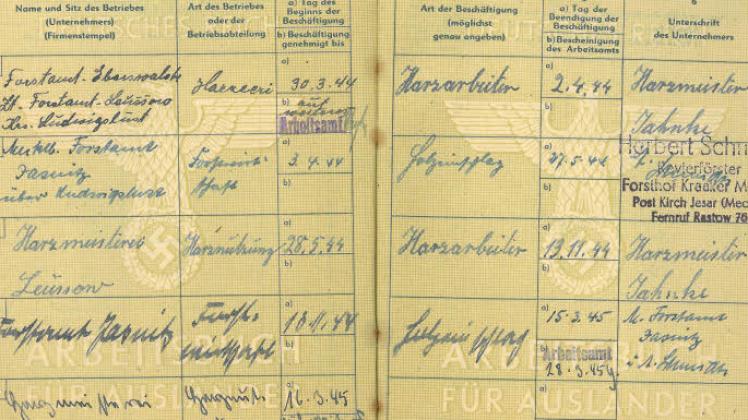 Name und Sitz des Betriebes
(Unternehmers)
(Firmenstempel)
Art des Betriebes
oder der
Betriebsabteilung
a) Tag des
Beginns der
Beschäftigung
b) Beschäftigung
genehmigt bis
Art der Beschäftigung
(möglichst
genau angeben)
a) Tag der
Beendigung der
Beschäftigung
b) Bescheinigung
des Arbeitsamts
6
Unterschrift
des Unternehmers
Forstamt Eberswalde
Forstamt Leüssow
Krs. Ludwigslust
a)
30.3.44
b) auf
weiteres
Arbeitsamt
Harzarbeiter
a)
2.4.44
b)
Harzmeister
Jahnke
Meckl. Forstamt
Jasnitz
über Ludwigslust
Forstwirt-
schaft
a)
3.4.44
b)
Holzeinschlag
a)
27.5.44
b)
Herbert Schm
Revierförster
Forsthof Kraaker M
Post Kirch Jesar (Mec
Fernruf Rastow 70
Harzmeisterei
Leüssow
Harznutzung
a)
28.5.44
b)
Harzarbeiter
a)
13.11.44
b)
Harzmeister
Jahnke
Forstamt Jasnitz
Forst-
wirtschaft
a)
18.11.44
b)
Holzeinschlag
a)
15.3.45
b) Arbeitsamt
28.3.45
M. Forstamt
Jasnitz
Harzmeisterei
a)
16.3.45
b)
ARBEITSBUCH
FÜR AUSLÄNDER
ARBEITSBUCH
FÜR AUSLÄNDER